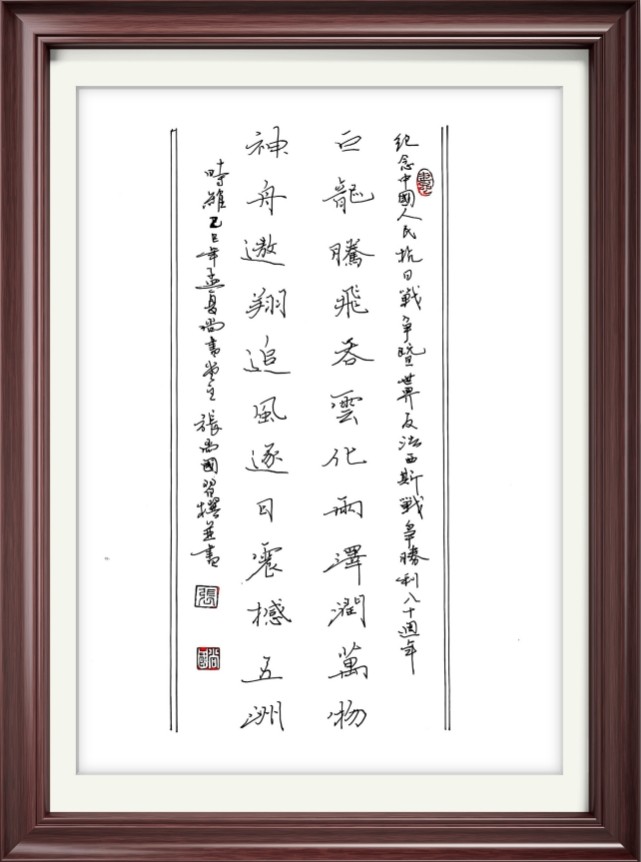 纪念中國人民抗日戰争暨世界反法西斯戰爭勝利八十週年
白龍騰飛吞雲化雨澤潤萬物
神舟遨翔追風逐日震撼五洲
時維乙巳年孟夏尚書堂主張尚國習撰並書
張
尚國